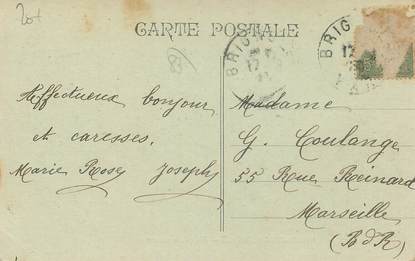 20t
CARTE POSTALE
83
BRIG
12
BRIG
12
Affectueux bonjour
et caresses.
Marie Rose Joseph
Madame
G. Coulange
55 Rue Reinard
Marseille
(B d R)